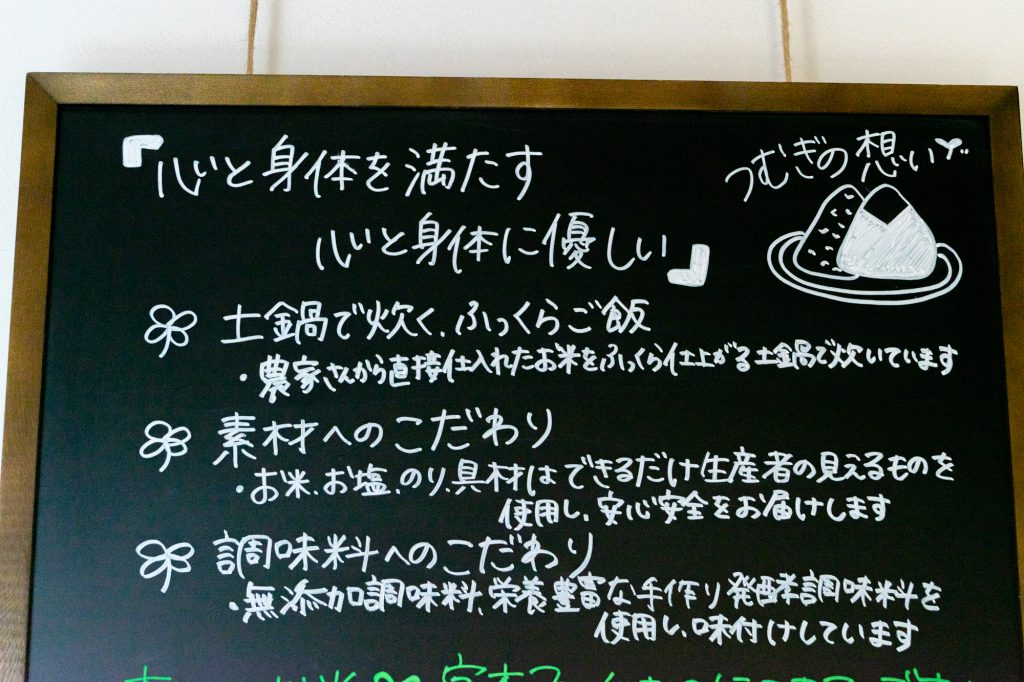 『心と身体を満たす
つむぎの想い
心と身体に優しい』
土鍋で炊く、ふっくらご飯
・農家さんから直接仕入れたお米をふっくら仕上がる土鍋で炊いています
素材へのこだわり
・お米、お塩、のり、具材はできるだけ生産者の見えるものを
使用し、安心安全をお届けします
調味料へのこだわり
・無添加調味料、栄養豊富な手作り発酵調味料を
使用し、味付けしています